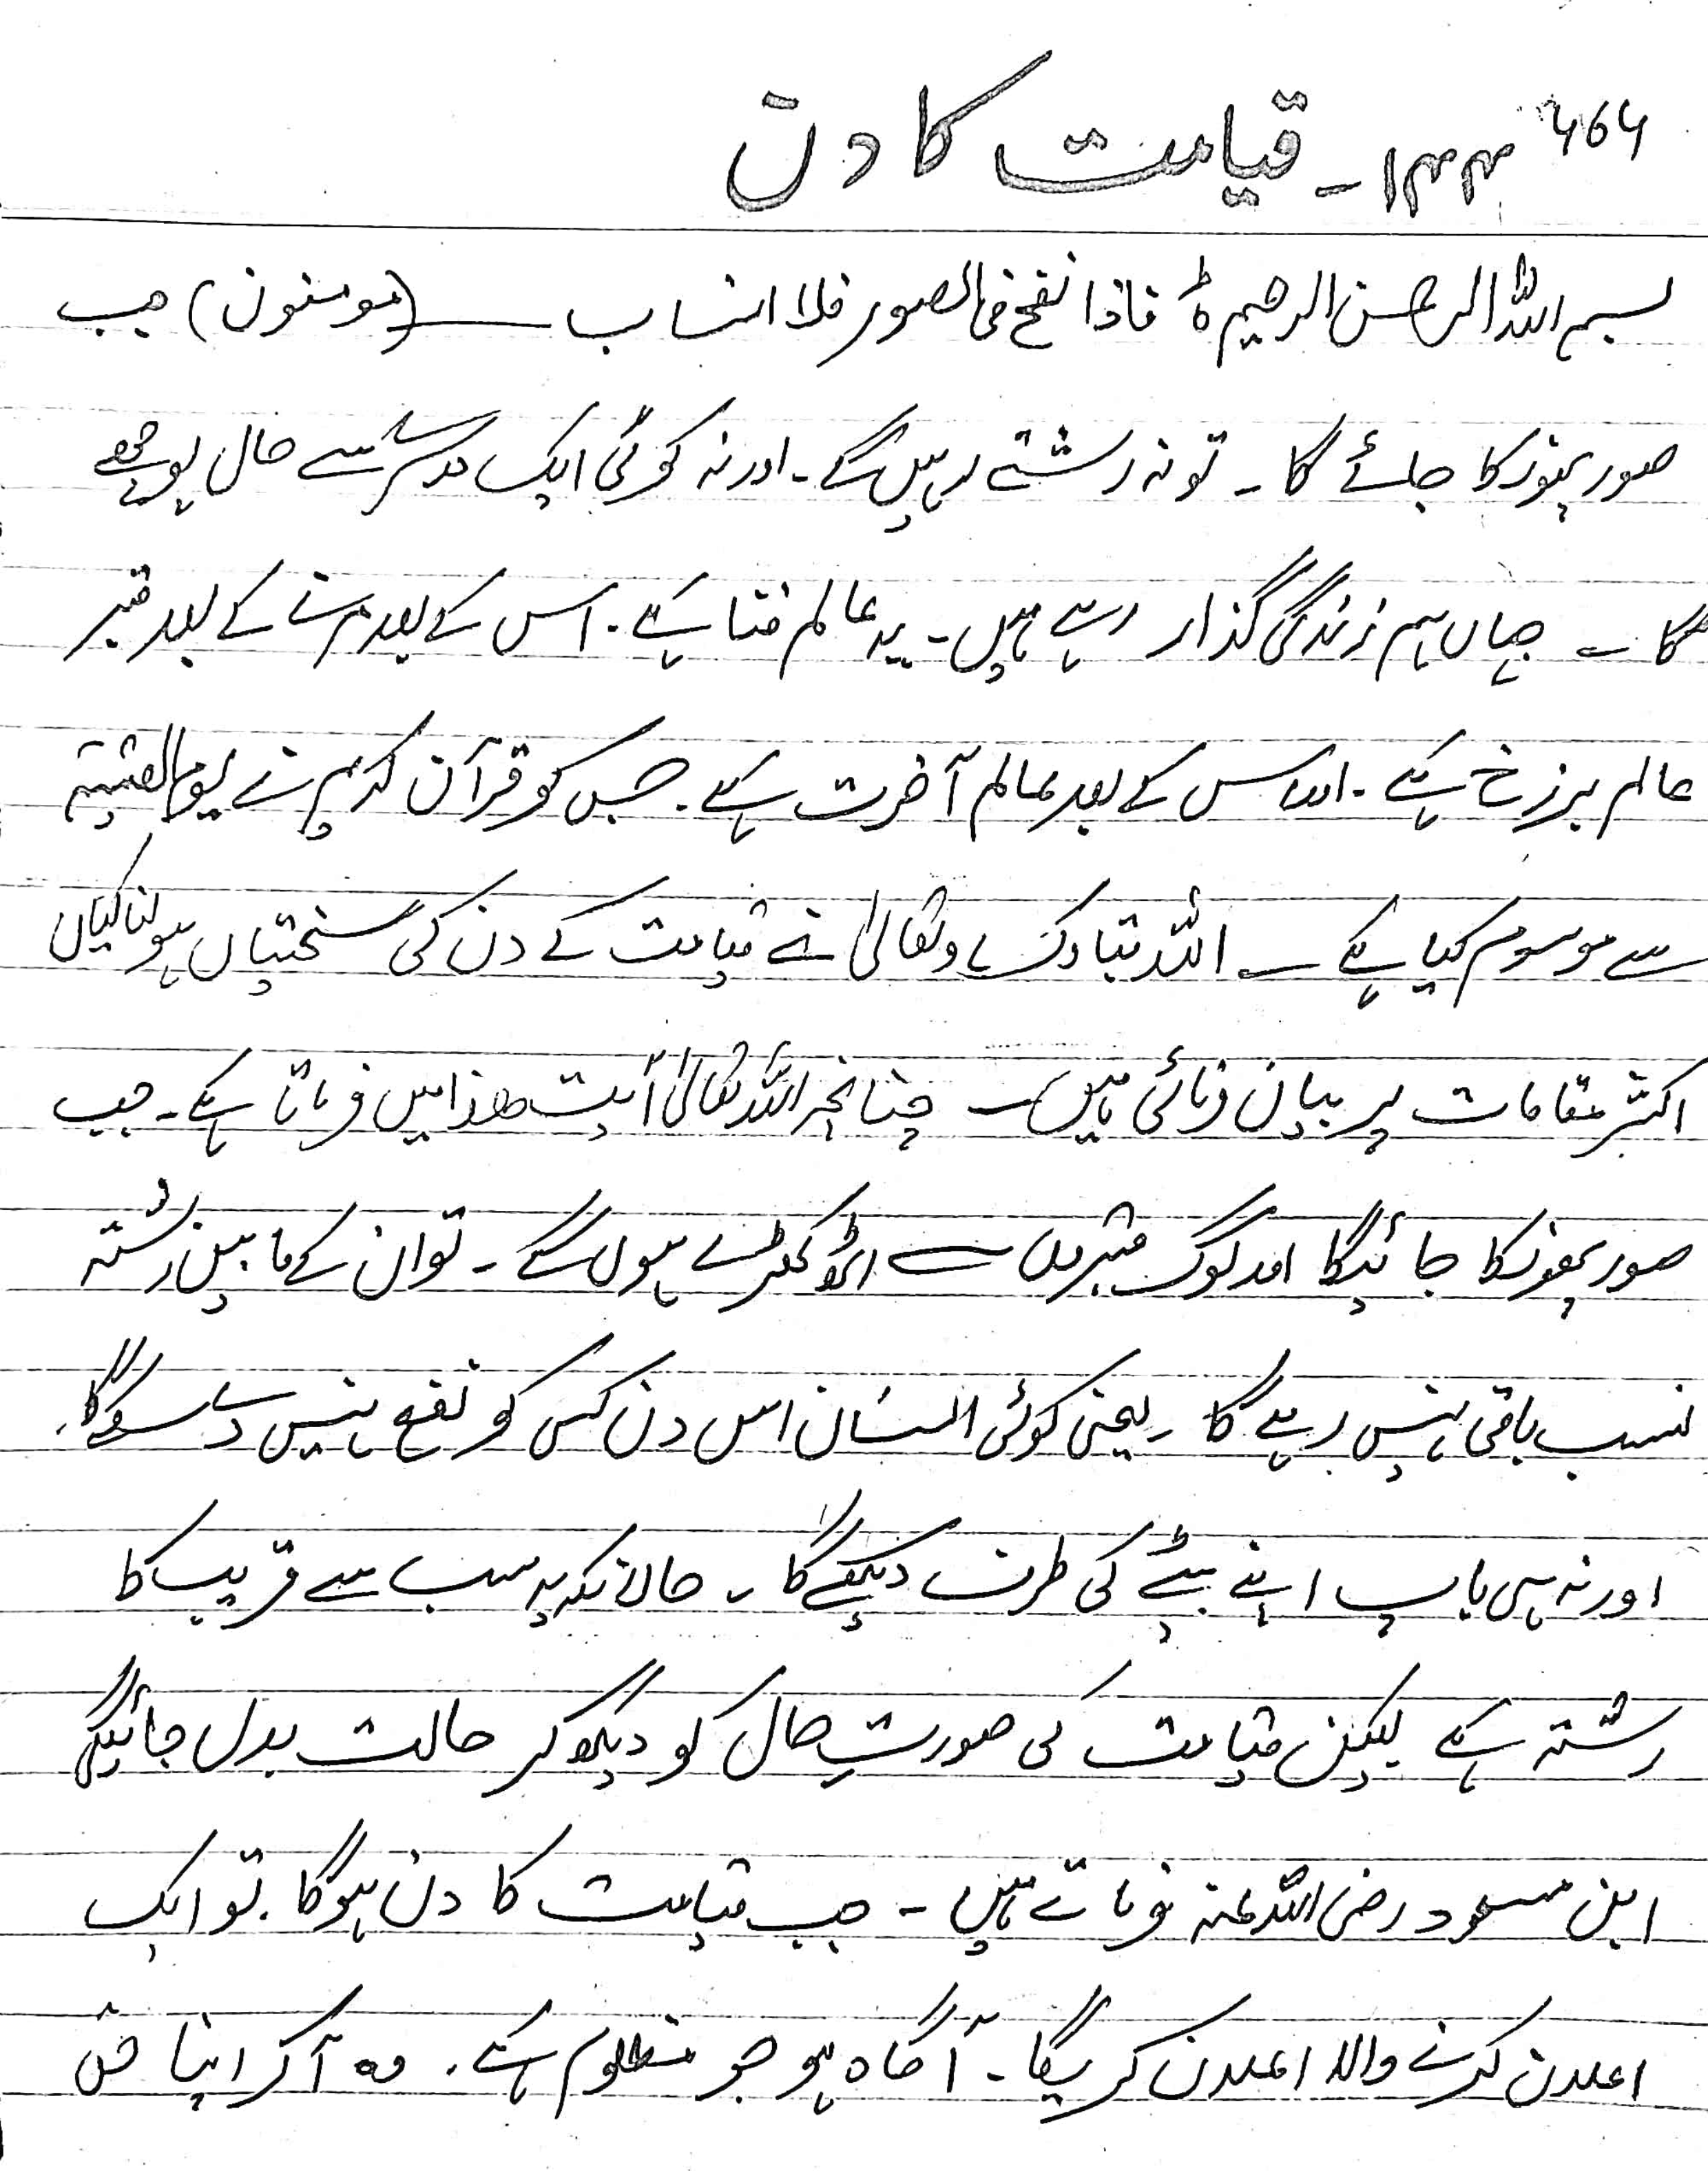 ۷۶۷
۱۴۴۔ قیامت کا دن
بسم اللہ الرحمن الرحیم ہ فاذا نفخ فی الصور فلا انساب ــــ (مومنون) جب
صور پھونکا جائے گا۔ تو نہ رشتے رہیں گے۔ اور نہ کوئی ایک دوسرے سے حال پوچھے
گا۔ جہاں ہم زندگی گذار رہے ہیں۔ یہ عالم فنا ہے۔ اس کے بعد مرنے کے بعد قبر
عالم برزخ ہے۔ اور اس کے بعد عالم آخرت ہے۔ جس کو قرآن کریم نے یوم القیٰمۃ
سے موسوم کیا ہے۔ اللہ تبارک وتعالیٰ نے قیامت کے دن کی سختیاں ہولناکیاں
اکثر مقامات پر بیان فرمائی ہیں۔ چنانچہ اللہ تعالیٰ آیت ھذا میں فرماتا ہے۔ جب
صور پھونکا جائیگا اور لوگ قبروں سے اٹھ کھڑے ہوں گے۔ تو ان کے مابین رشتہ
نسب باقی نہیں رہے گا۔ یعنی کوئی انسان اس دن کسی کو نفع نہیں دے سکے گا۔
اور نہ ہی باپ اپنے بیٹے کی طرف دیکھے گا۔ حالانکہ یہ سب سے قریب کا
رشتہ ہے لیکن قیامت کی صورتِ حال کو دیکھ کر حالت بدل جائیگی
ابن مسعود رضی اللہ عنہ فرماتے ہیں۔ جب قیامت کا دن ہوگا۔ تو ایک
اعلان کرنے والا اعلان کریگا۔ آگاہ ہو جو مظلوم ہے۔ وہ آکر اپنا حق